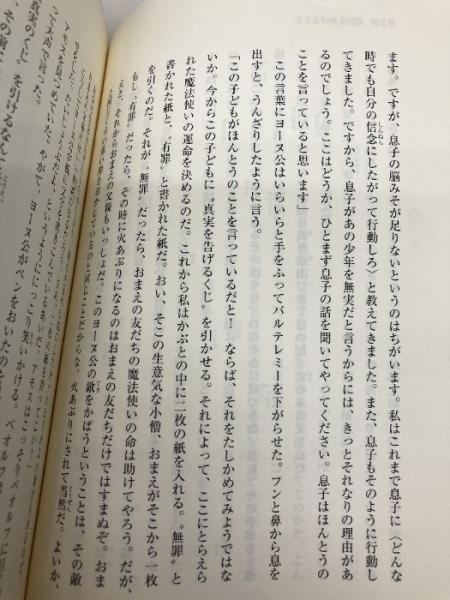 ます。ですが、息子の脳みそが足りないというのはちがいます。私はこれまで息子に〈どんな
時でも自分の信念にしたがって行動しろ〉と教えてきました。また、息子もそのように行動し
てきました。ですから、息子があの少年を無実だと言うからには、きっとそれなりの理由があ
るのでしょう。ここはどうか、ひとまず息子の話を聞いてやってください。息子はほんとうの
ことを言っていると思います」
この言葉にヨーヌ公はいらいらと手をふってバルテレミーを下がらせた。フンと鼻から息を
出すと、うんざりしたように言う。
「この子どもがほんとうのことを言っているだと！　ならば、それをたしかめてみようではな
いか。今からこの子どもに〝真実を告げるくじ〟を引かせる。それによって、ここにとらえら
れた魔法使いの運命を決めるのだ。これから私はかぶとの中に二枚の紙を入れる。〝無罪〟と
書かれた紙と、〝有罪〟と書かれた紙だ。おい、そこの生意気な小僧、おまえがそこから一枚
を引くのだ。それが〝無罪〟だったら、おまえの友だちの魔法使いの命は助けてやろう。だが、
もし〝有罪〟だったら、その時に火あぶりになるのはおまえの友だちだけではすまぬぞ。おま
えと、それからおまえの父親もいっしょだ。このヨーヌ公の敵をかばうということは、その敵
火あぶりにされて当然だ。よいか、